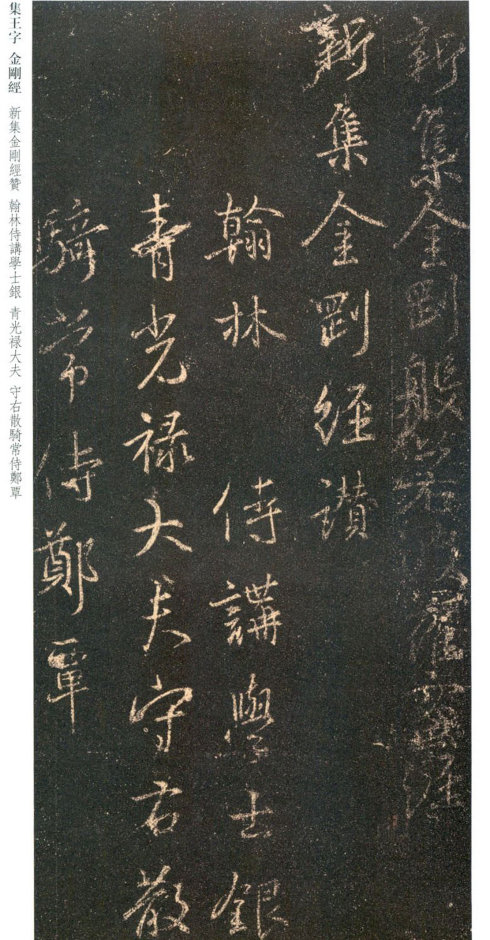 新集金剛般若波羅蜜經
新集金剛經讚
翰林 侍講學士銀
青光禄大夫守右散
騎常侍鄭覃
集王字 金剛經 新集金剛經贊 翰林侍講學士銀 青光禄大夫 守右散騎常侍鄭覃